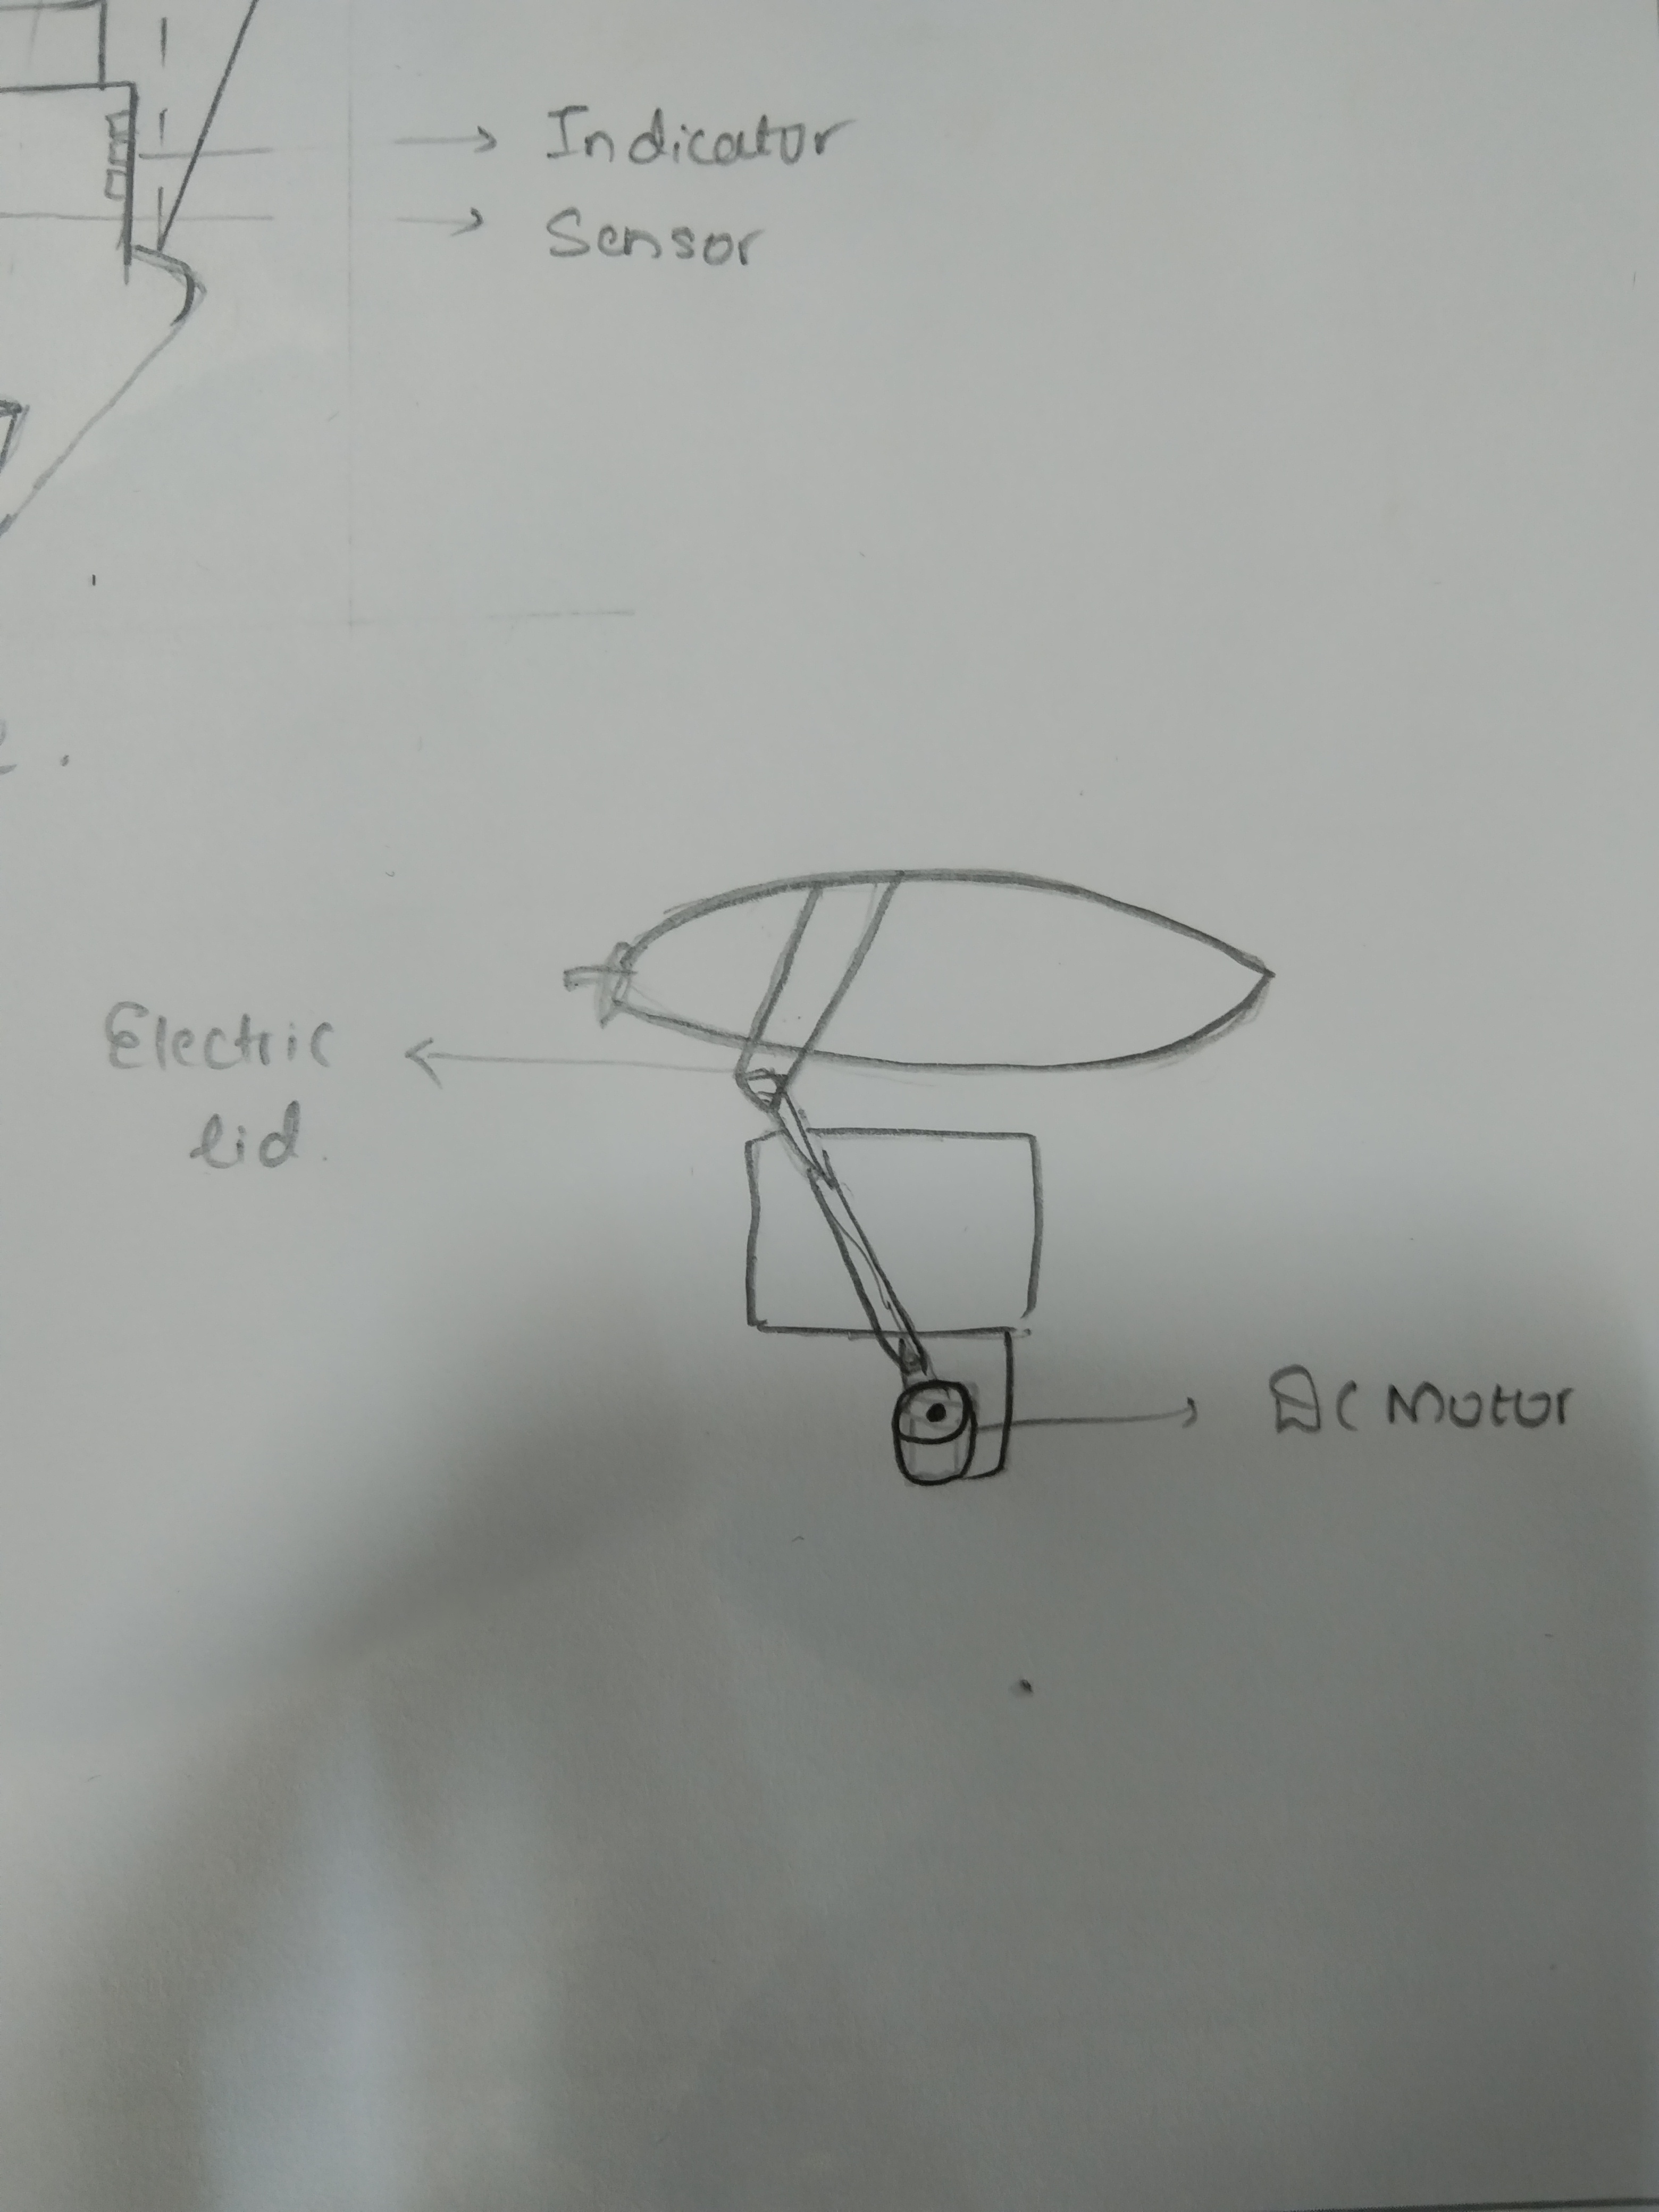 Indicator
Sensor
Electric
lid.
DC Motor